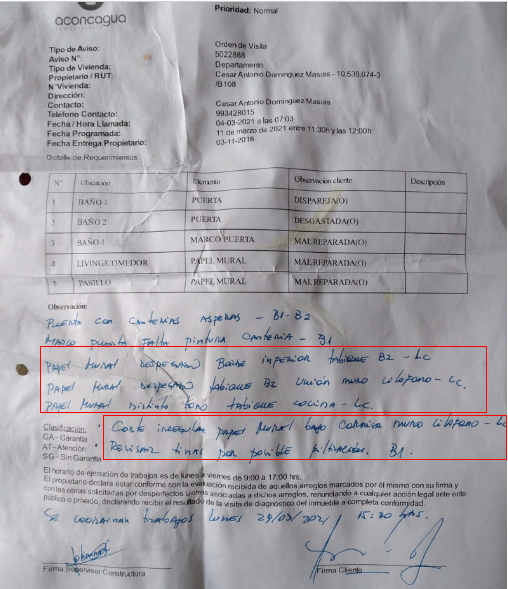 aconcagua
Prioridad: Normal
Tipo de Aviso: Orden de Visita
Aviso N°: 5022888
Tipo de Vivienda: Departamento
Propietario / RUT: Cesar Antonio Dominguez Masias - 10.530.074-3
N°Vivienda: /B108
Dirección:
Contacto: Cesar Antonio Dominguez Masias
Telefono Contacto: 993428015
Fecha / Hora Llamada: 04-03-2021 a las 07:03
Fecha Programada: 11 de marzo de 2021 entre 11:30h y las 12:00h
Fecha Entrega Propietario: 03-11-2016
Detalle de Requerimientos:
N° Ubicación Elemento Observación cliente Descripción
1 BAÑO 1 PUERTA DISPAREJA(O)
2 BAÑO 2 PUERTA DESGASTADA(O)
3 BAÑO 1 MARCO PUERTA MAL REPARADA(O)
4 LIVING/COMEDOR PAPEL MURAL MAL REPARADA(O)
5 PASILLO PAPEL MURAL MAL REPARADA(O)
Observación:
PUERTA CON CANTERIAS ASPERAS - B1-B2
MARCO PUERTA FALTA PINTURA CANTERIA - B1
PAPEL MURAL DESPEGADO BORDE INFERIOR TABIQUE B2 - LC
PAPEL MURAL DESPEGADO TABIQUE B2 UNIÓN MURO CITOFONO - LC.
PAPEL MURAL DISTINTO TONO TABIQUE COCINA - LC.
Clasificación:
GA - Garantía
AT - Atención
SG - Sin Garantía
CORTE IRREGULAR PAPEL MURAL BAJO CORNISA MURO CITOFONO - LC
REVISAR TINAS POR POSIBLE FILTRACIÓN. B1.
El horario de ejecución de trabajos es de lunes a viernes de 9:00 a 17:00 hrs.
El propietario declara estar conforme con la evaluación recibida de aquellos arreglos marcados por él mismo con su firma y
con las obras solicitadas por desperfectos u otras asociadas a dichos arreglos, renunciando a cualquier acción legal ante ente
público o privado, declarando recibir el resultado de la visita de diagnóstico del inmueble a completa conformidad.
SE COORDINAN TRABAJOS LUNES 29/03/2021 15:30 HRS.
Firma Supervisor Constructora
Firma Cliente